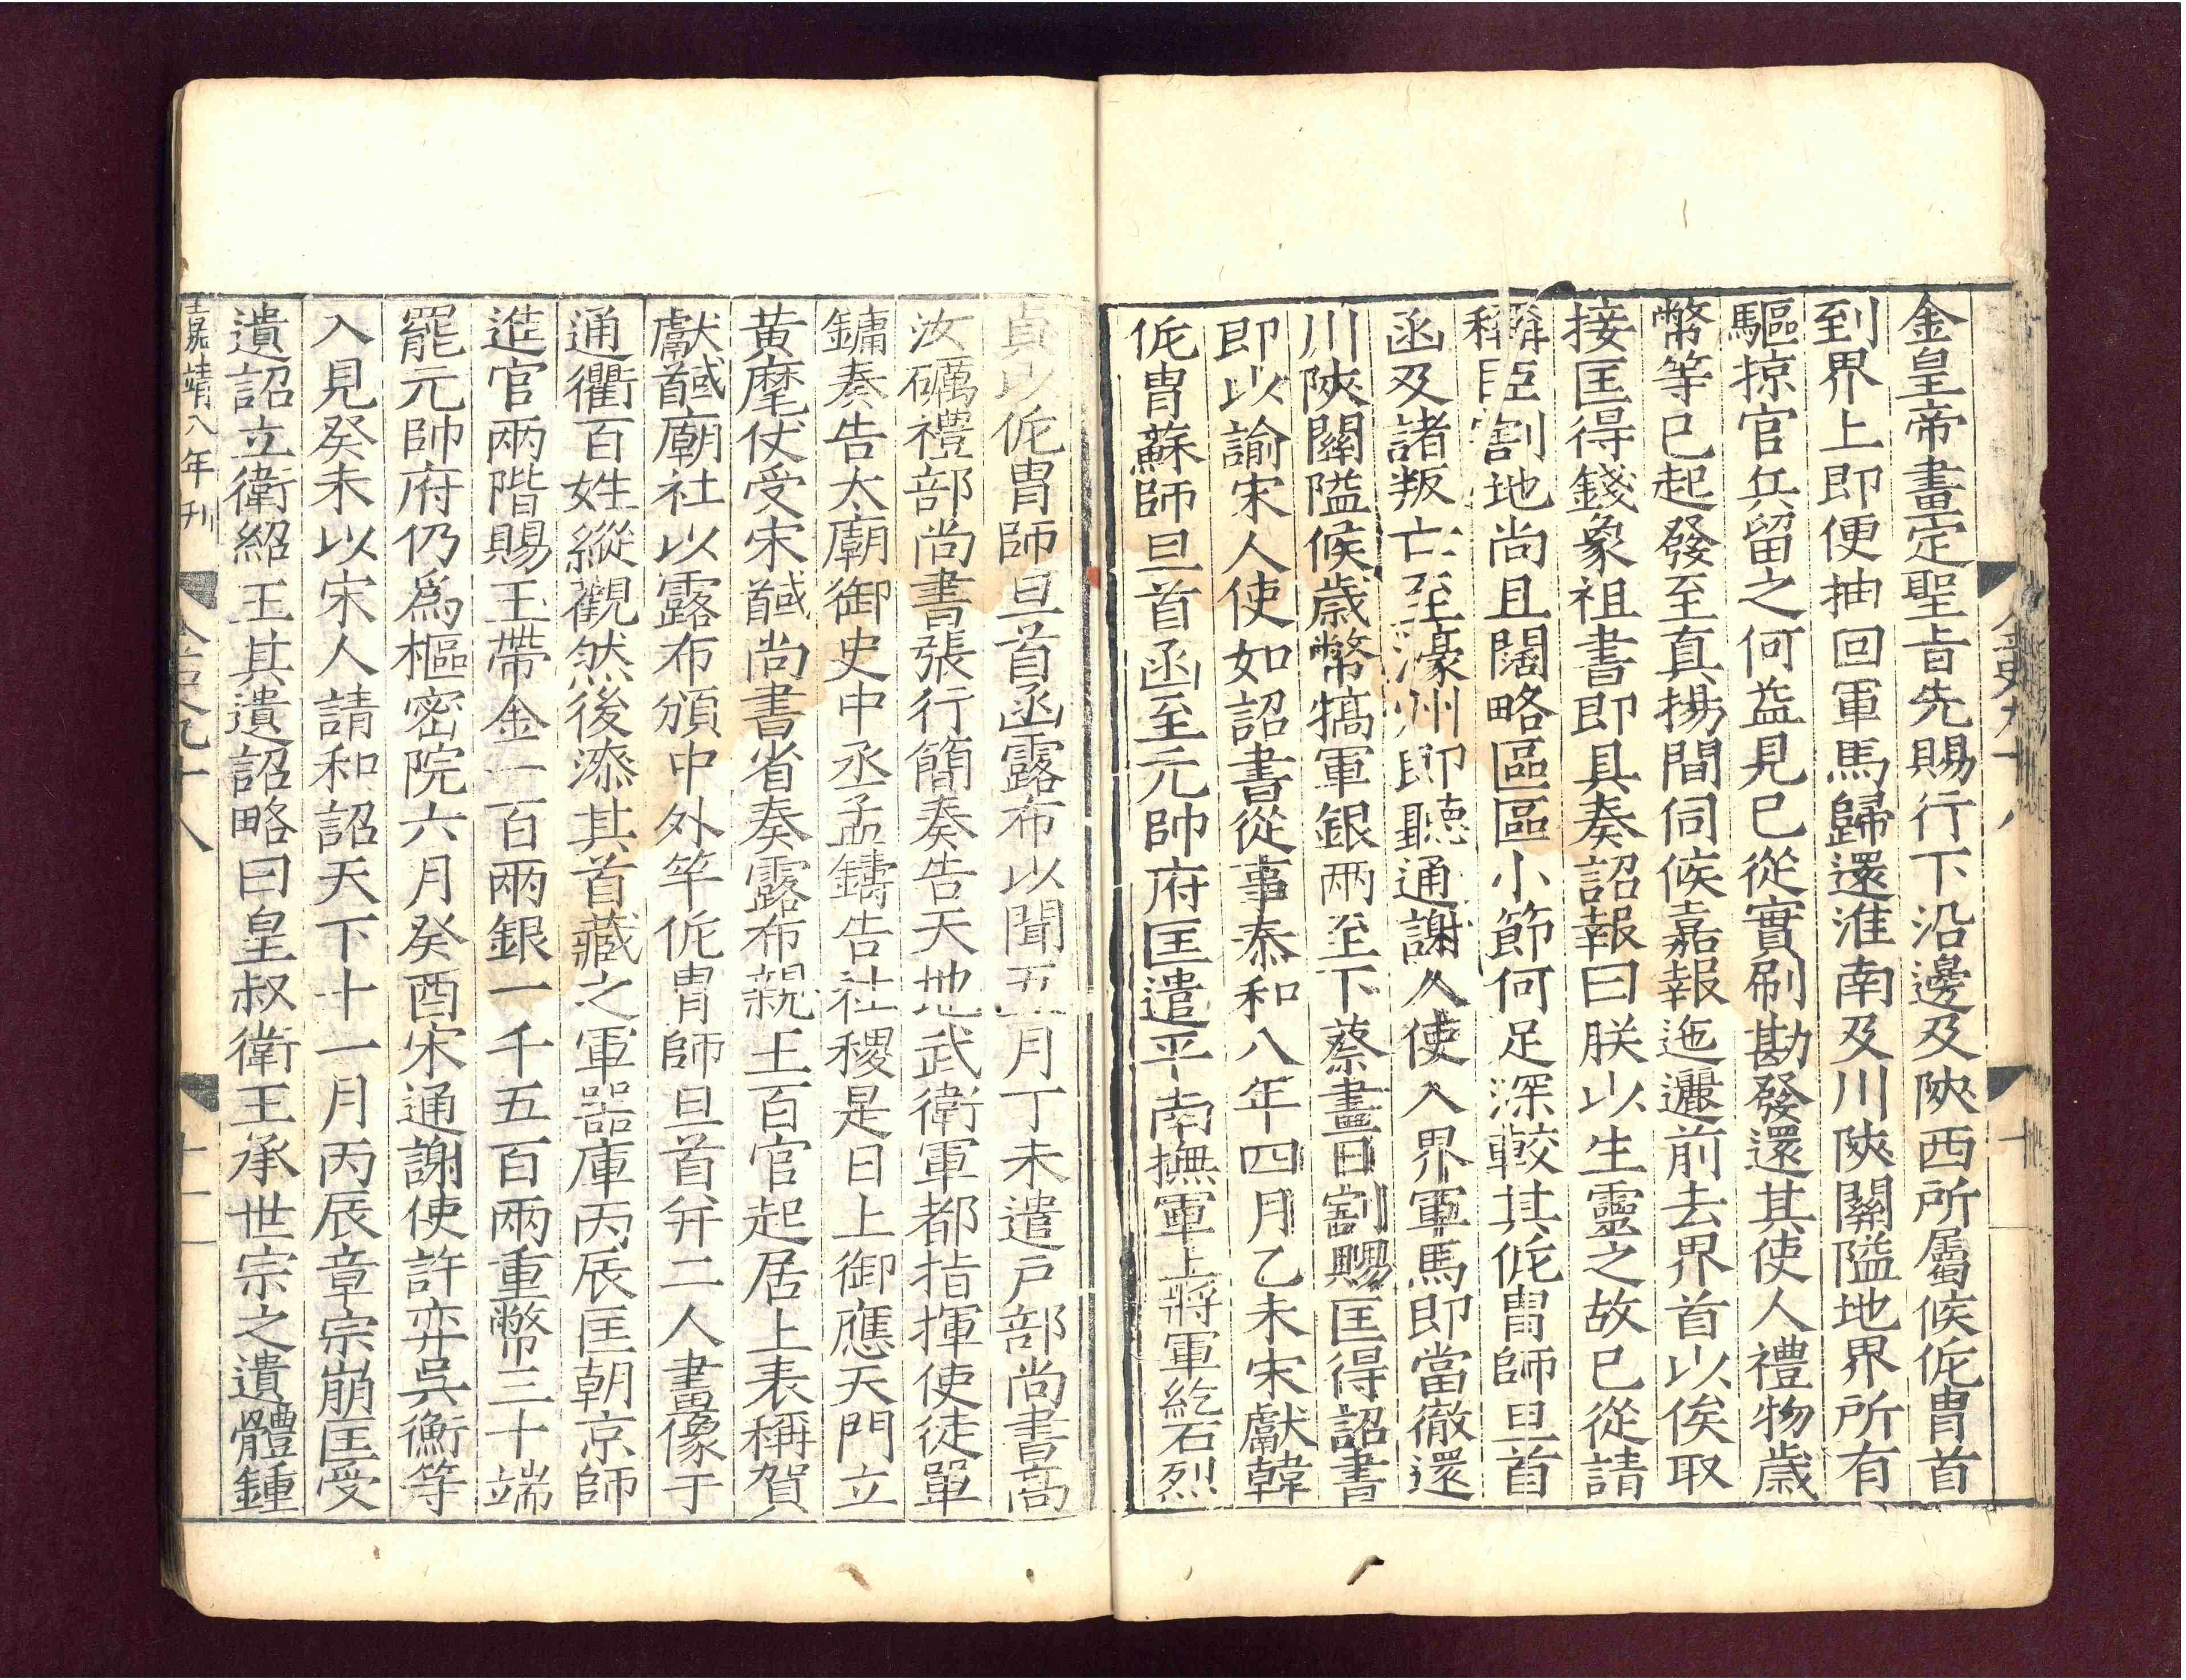 金皇帝畫定聖旨先賜行下沿邊及陝西所屬候侂胄首
到界上即便抽回軍馬歸還淮南及川陝關隘地界所有
驅掠官兵留之何益見已從實刷勘發還其使人禮物歳
幣等已起發至真揚間伺候嘉報迤邐前去界首以俟取
接匡得錢象祖書即具奏詔報曰朕以生靈之故已從請
稱臣割地尚且闊略區區小節何足深較其侂胄師旦首
函及諸叛亡至濠州即聽通謝人使入界軍馬即當徹還
川陝關隘候歳幣犒軍銀兩至下蔡畫日割賜匡得詔書
即以諭宋人使如詔書從事泰和八年四月乙未宋獻韓
侂胄蘇師旦首函至元帥府匡遣平南撫軍上將軍紇石烈
貞以侂胄師旦首函露布以聞五月丁未遣戶部尚書高
汝礪禮部尚書張行簡奏告天地武衛軍都指揮使徒單
鏞奏告太廟御史中丞孟鑄告社稷是日上御應天門立
黃麾仗受宋馘尚書省奏露布親王百官起居上表稱賀
獻馘廟社以露布頒中外竿侂胄師旦首并二人畫像于
通衢百姓縱觀然後漆其首藏之軍器庫丙辰匡朝京師
進官兩階賜玉帶金一百兩銀一千五百兩重幣三十端
罷元帥府仍爲樞密院六月癸酉宋通謝使許弈吳衡等
入見癸未以宋人請和詔天下十一月丙辰章宗崩匡受
遺詔立衛紹王其遺詔略曰皇叔衛王承世宗之遺體鍾
嘉靖八年刊
金史九十八
十一